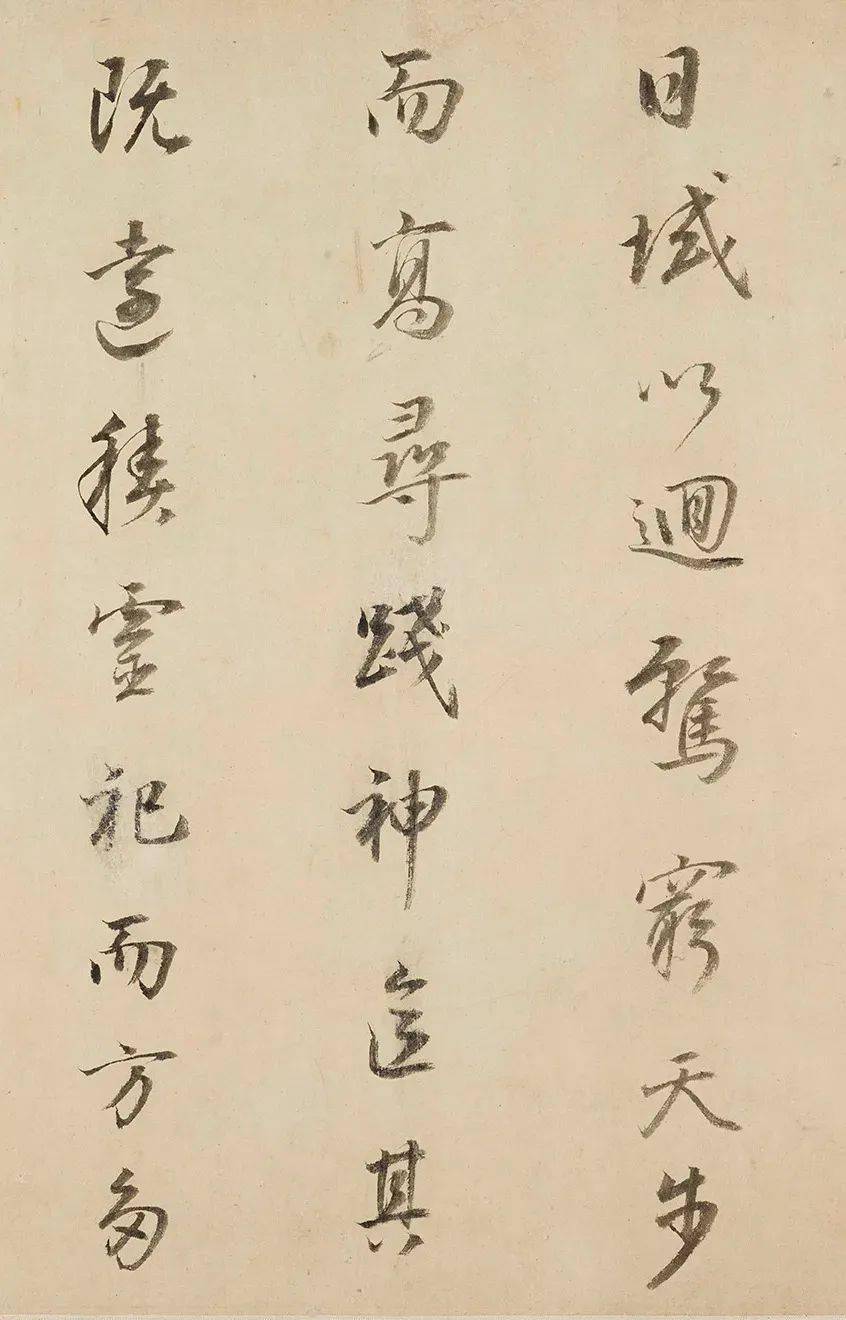 日域以迴騖窮天步
而高尋踐神區其
既遠積靈祀而方多